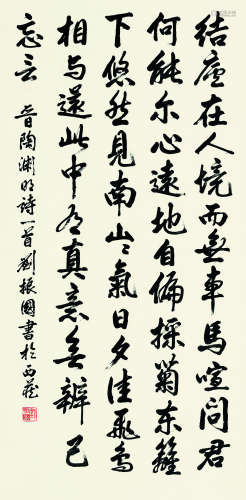 結廬在人境而無車馬喧問君
何能尔心遠地自偏採菊东籬
下悠然見南山〻氣日夕佳飛鸟
相与還此中有真意欲辨已
忘言 晉陶渊明诗一首劉振國書於西